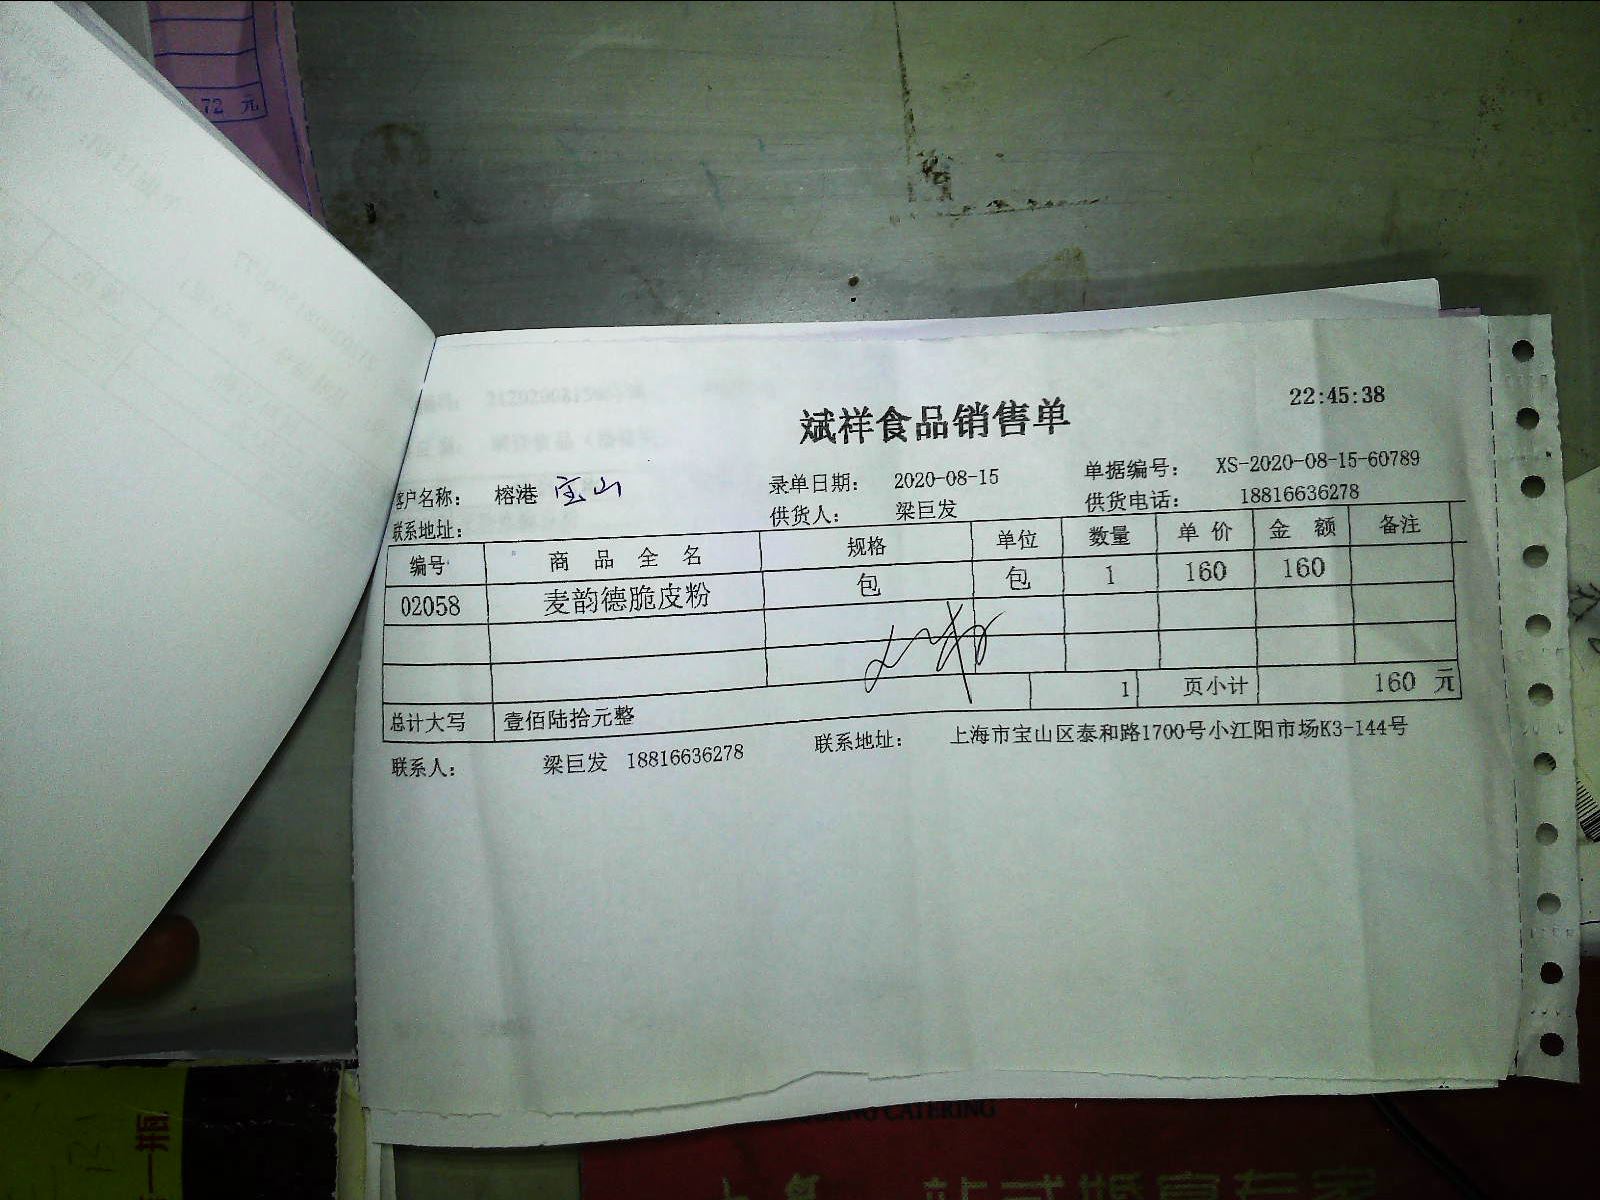 72 元
斌祥食品销售单
22:45:38
客户名称： 榕港 宝山 录单日期： 2020-08-15 单据编号： XS-2020-08-15-60789
联系地址： 供货人： 梁巨发 供货电话： 18816636278
编号 商品全名 规格 单位 数量 单价 金额 备注
02058 麦韵德脆皮粉 包 包 1 160 160
总计大写 壹佰陆拾元整 1 页小计 160 元
联系人： 梁巨发 18816636278 联系地址： 上海市宝山区泰和路1700号小江阳市场K3-144号
CATERING
一瓶